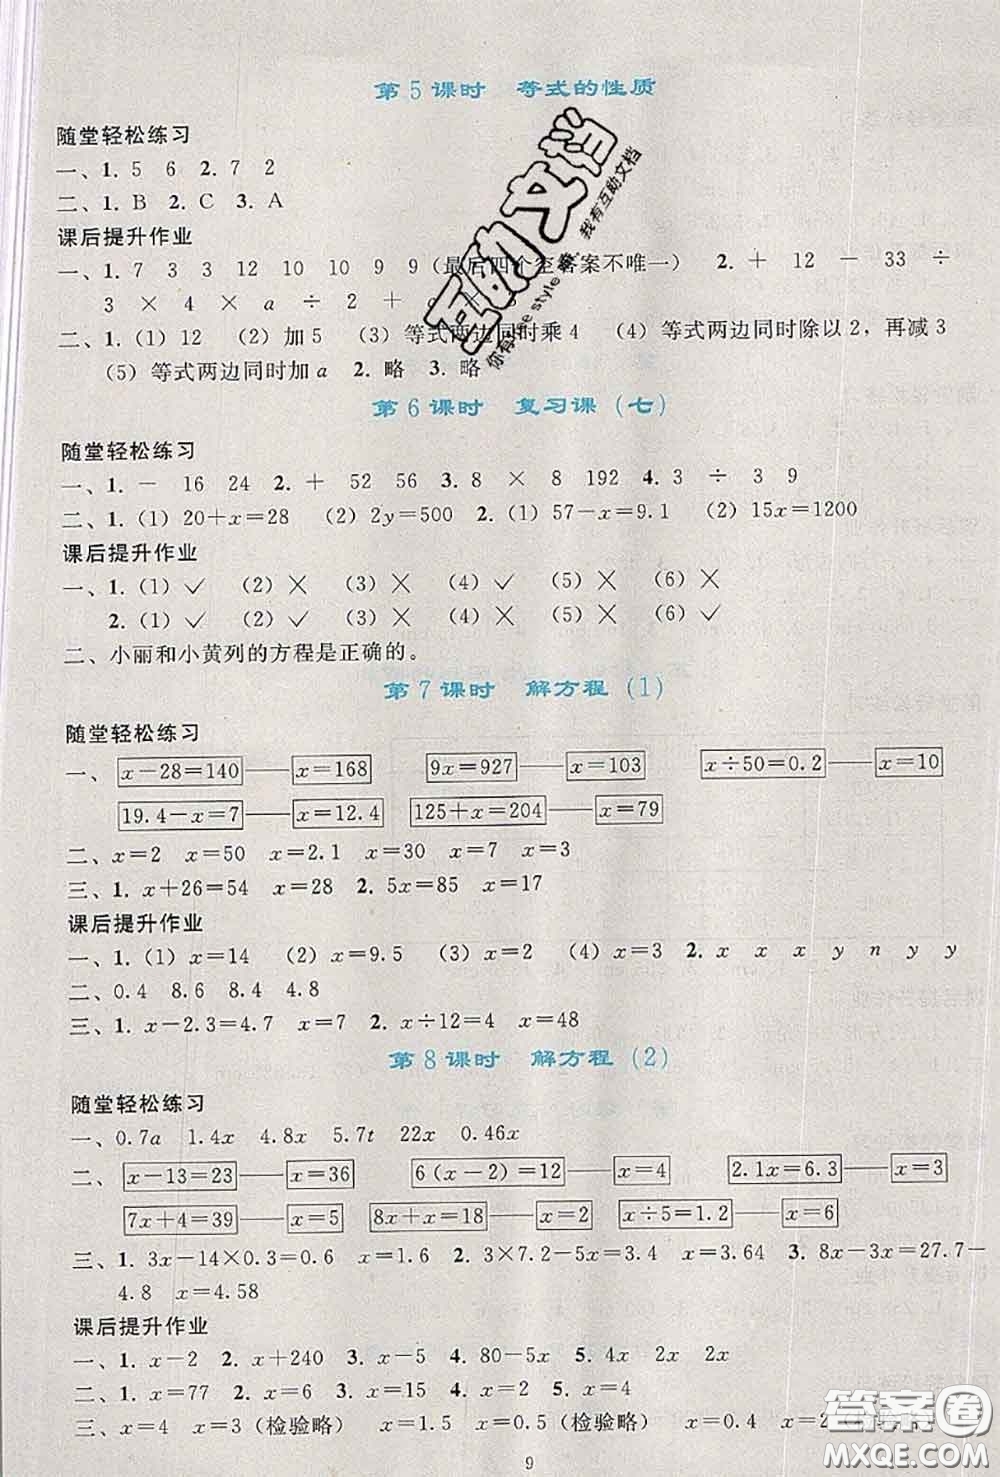 第5课时 等式的性质
随堂轻松练习
一、1. 5 6 2. 7 2
二、1. B 2. C 3. A
课后提升作业
一、1. 7 3 3 12 10 10 9 9（最后四个空答案不唯一） 2. + 12 - 33 ÷
3 × 4 × a ÷ 2 +
二、1.（1）12 （2）加5 （3）等式两边同时乘4 （4）等式两边同时除以2，再减3
（5）等式两边同时加a 2. 略 3. 略
第6课时 复习课（七）
随堂轻松练习
一、1. - 16 24 2. + 52 56 3. 8 × 8 192 4. ÷ ÷ 3 9
二、1.（1）20+x=28 （2）2y=500 2.（1）57-x=9.1 （2）15x=1200
课后提升作业
一、1.（1）✓ （2）× （3）× （4）✓ （5）× （6）×
2.（1）✓ （2）✓ （3）× （4）✓ （5）× （6）✓
二、小丽和小黄列的方程是正确的。
第7课时 解方程（1）
随堂轻松练习
一、 x-28=140 x=168 9x=927 x=103 x÷50=0.2 x=10
19.4-x=7 x=12.4 125+x=204 x=79
二、x=2 x=50 x=2.1 x=30 x=7 x=3
三、1. x+26=54 x=28 2. 5x=85 x=17
课后提升作业
一、1.（1）x=14 （2）x=9.5 （3）x=2 （4）x=3 2. x x x y n y y
二、0.4 8.6 8.4 4.8
三、1. x-2.3=4.7 x=7 2. x÷12=4 x=48
第8课时 解方程（2）
随堂轻松练习
一、0.7a 1.4x 4.8x 5.7t 22x 0.46x
二、 x-13=23 x=36 6（x-2）=12 x=4 2.1x=6.3 x=3
7x+4=39 x=5 8x+x=18 x=2 x÷5=1.2 x=6
三、1. 3x-14×0.3=0.6 x=1.6 2. 3×7.2-5x=18 x=0.72 3. 8x-3x=27.7-
4.8 x=4.58
课后提升作业
一、1. x-2 2. x+240 3. x-5 4. 80-5x 5. 4x 2x 2x
二、1. x=77 2. x=6 3. x=15 4. x=2 5. x=4
三、x=4 x=3（检验略） x=1.5 x=0.5（检验略） x=0.4 x=2
9
互助文档
我有互助文档
答案圈
MXQE.COM